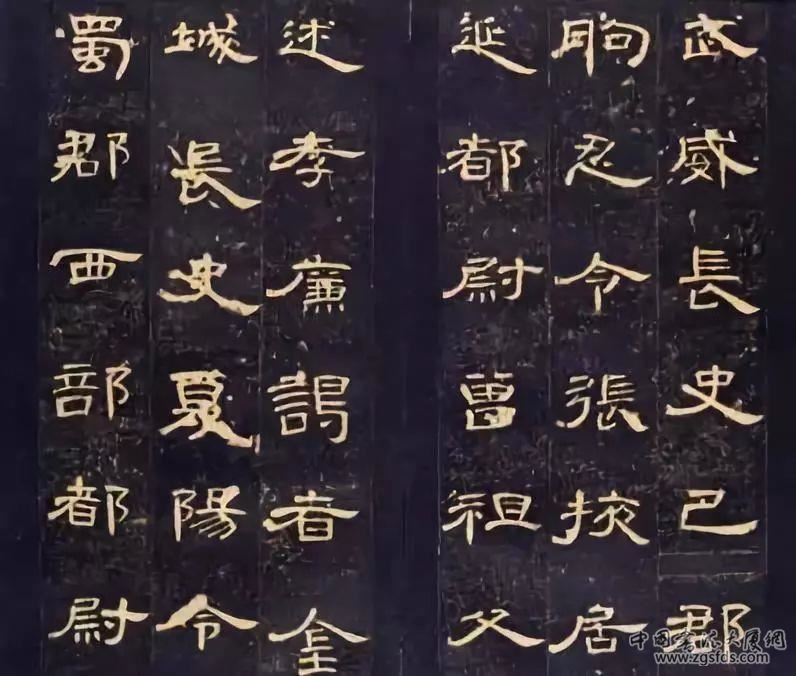 武威長史巴郡
朐忍令張掖居
延都尉曾祖父
述孝廉謁者金
城長史夏陽令
蜀郡西部都尉
中国书法大展网
www.zgsfds.com